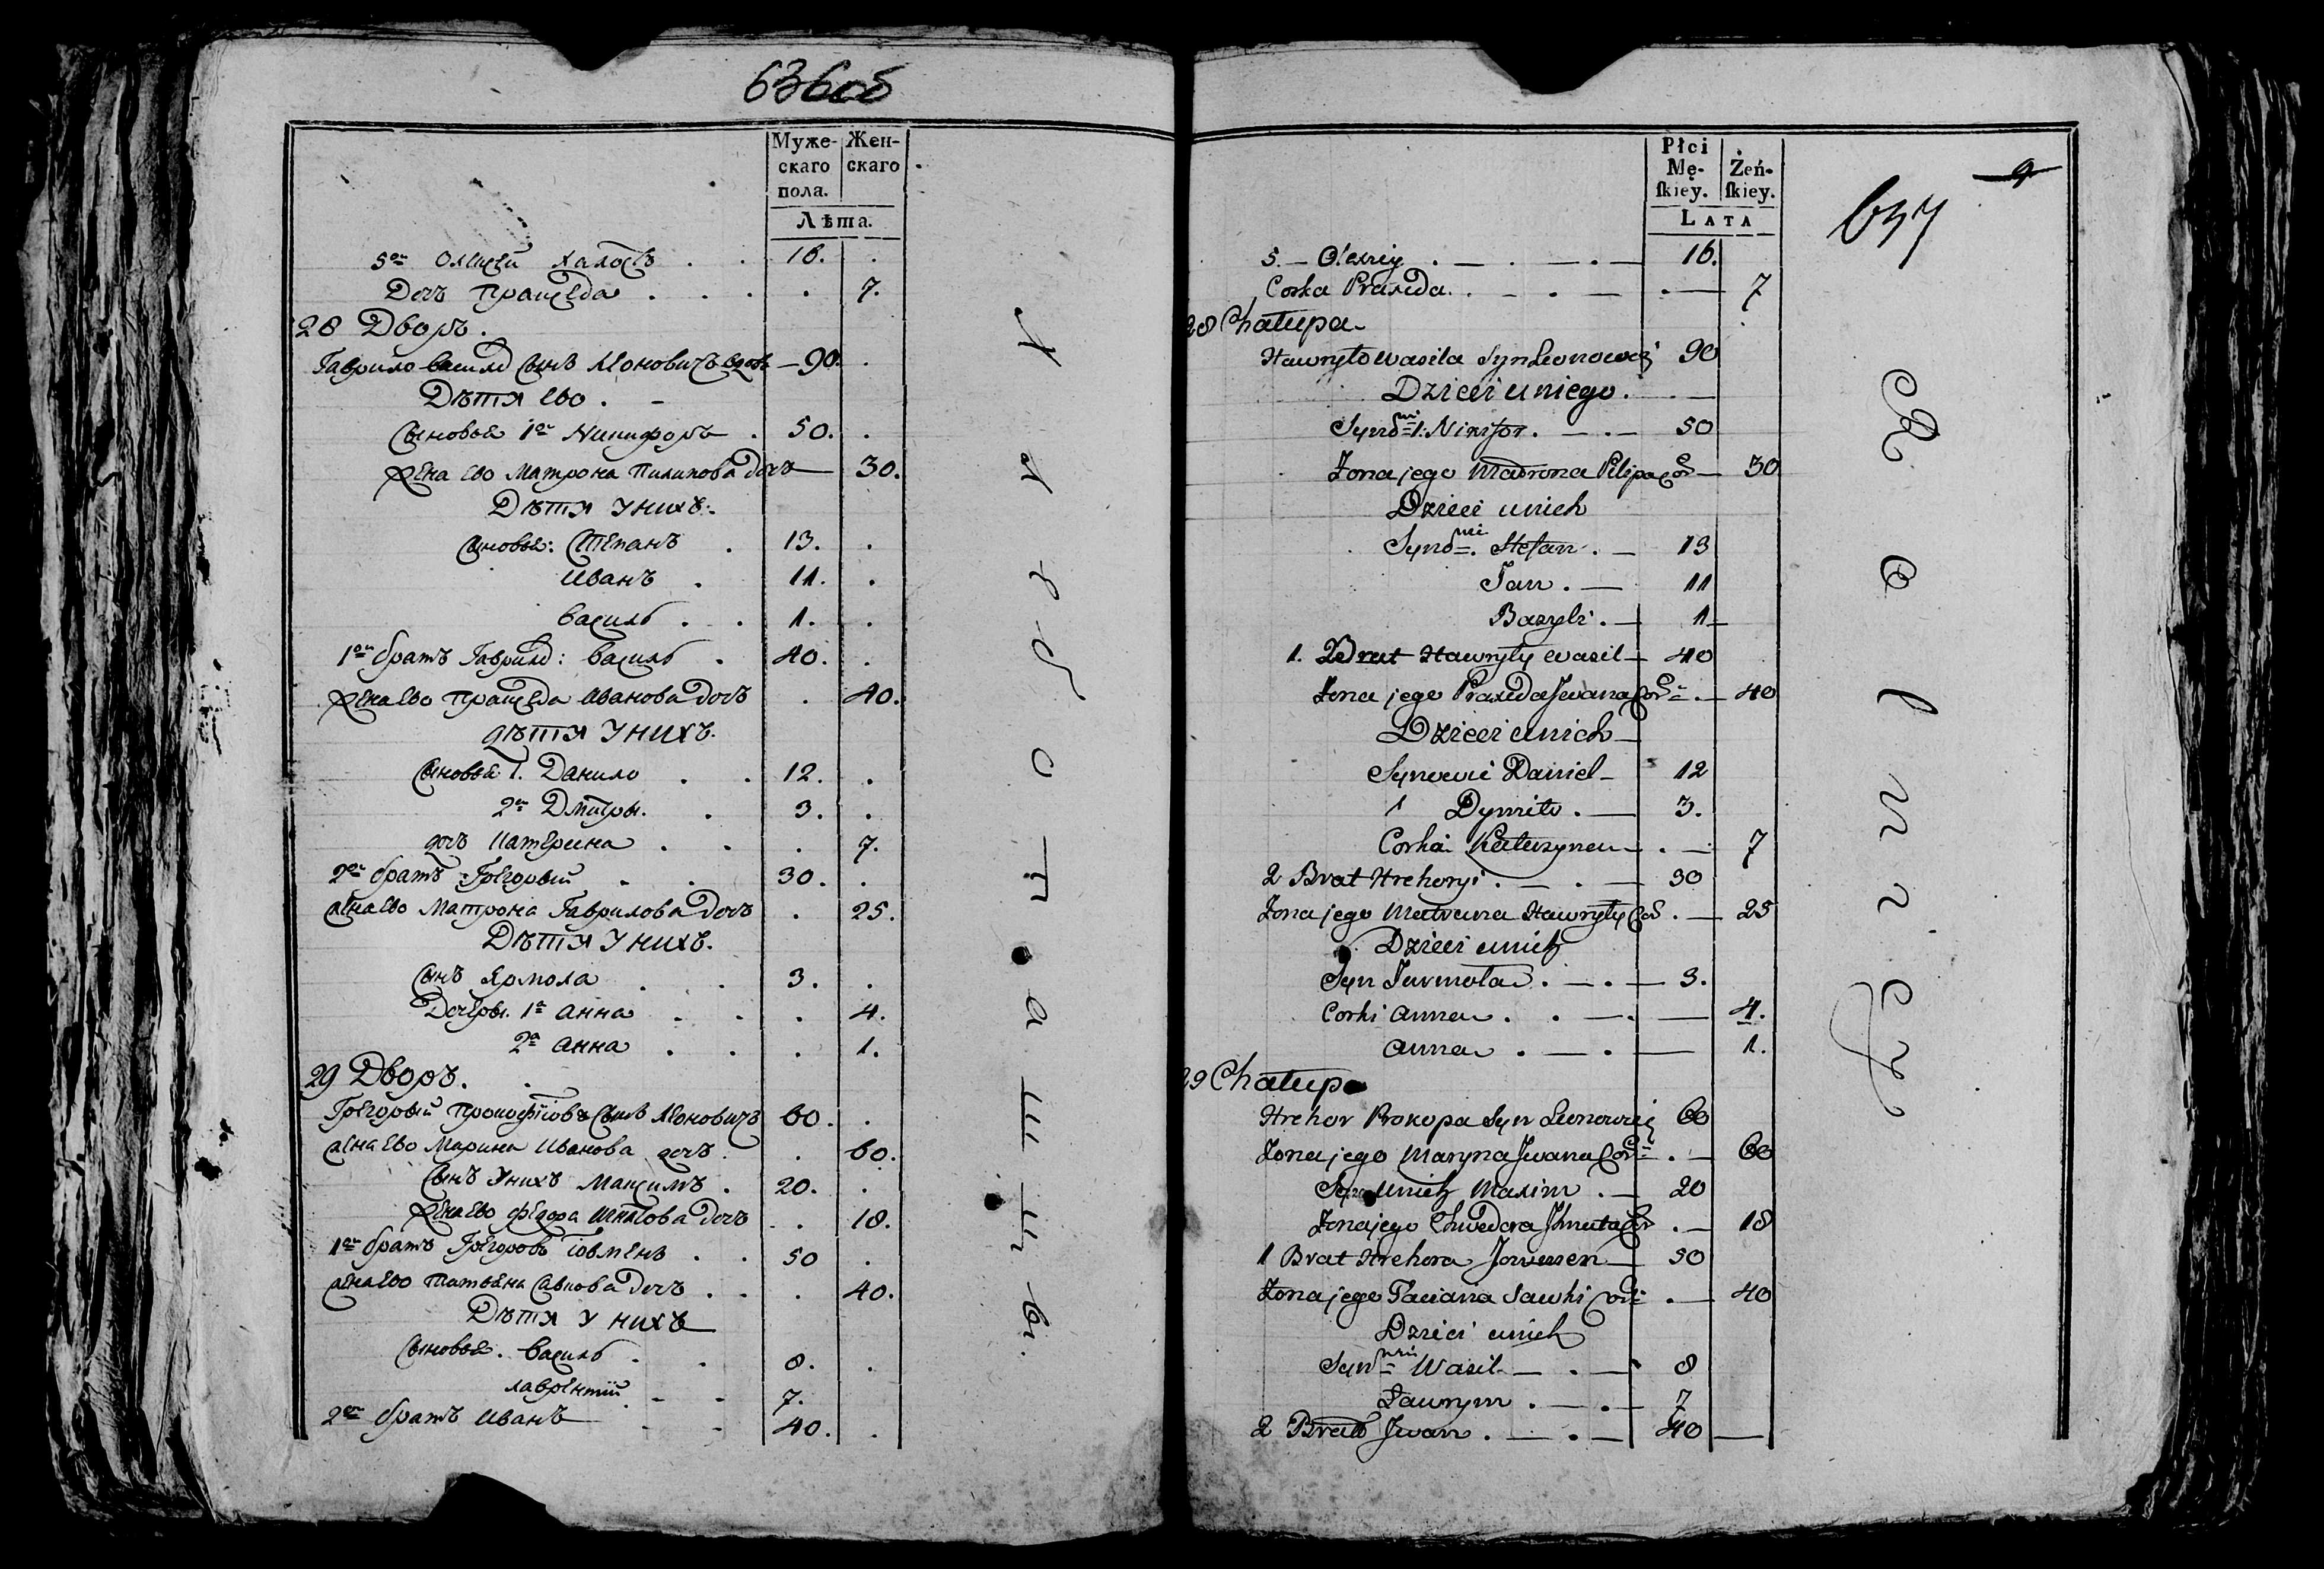 636об
Муже-скаго пола. Жен-скаго
Лѣта.
5ой Олиѕей холостъ . . 16. .
Дочъ Праѯеда . . . . 7.
28 Дворъ.
Гаврило Василя Сынъ Леоновичъ вдовъ — 90. .
Дѣтя ево . -
Сыновья 1ой Никифоръ . 50. .
Жена ево Матрона Пилипова Дочъ — 30.
Дѣтя У нихъ.
Сыновья: Степанъ . 13. .
Иванъ . 11. .
Василь . . 1. .
1ой братъ Гаврилы: Василь . 40. .
Жена ево Праѯеда Иванова Дочъ . 40.
дѣтя У нихъ.
Сыновья 1. Данило . . 12. .
2ой Дмитры. . 3. .
дочъ Катерина . . . 7.
2ой братъ Грегорый . . 30. .
жена ево Матрона Гаврилова Дочъ . 25.
Дѣтя У нихъ.
Сынъ Ярмола . . 3. .
Дочеры. 1я Анна . . . 4.
2я Анна . . . 1.
29 Дворъ. .
Грегорый Прокофїсовъ Сынъ Леоновичъ 60. .
жена ево Марина Иванова дочъ . . 60.
Сынъ Унихъ Маѯимъ . 20. .
Жена ево Федора Игнатова Дочъ . . 18.
1ой братъ Грегоровъ Іовменъ . . 50 .
жена ево Татьяна Савкова Дочъ . . . 40.
Дѣтя У нихъ
Сыновья. Василь . . 8. .
Лаврентїй . - - 7.
2ой братъ Иванъ - - 40. .
Płci Mę-ſkiey. Żeń-ſkiey.
LATA
637
5. — Olexiy . — . — . — 16.
Corka Praxeda. . — . — . — 7
28 Chałupa
Hawryło Wasila Syn Leonowicz 90
Dzieci u niego. . —
Synowi 1. Nikifor . — . — 50
Żona jego Matrona Pilipa Cor — 30
Dzieci u nich
Synowi. Stefan . — 13
Jan . — 11
Bazyli . — 1
1. Brat Hawryły Wasil — 40
Żona jego Praxeda Iwana Cor . — 40
Dzieci u nich —
Synowie Daniel — 12
1 Dymitr . — 3.
Corka Katarzyna — . — 7
2 Brat Hrehory . — . — 30
Żona jego Matrona Hawryły Cor . — 25
Dzieci u nich
Syn Jarmoła . — . — 3.
Corki Anna . . — . — 4.
Anna . — . — 1.
29 Chałupa
Hrehor Prokopa Syn Leonowicz 60
Żona jego Maryna Iwana Cor . — 60
Syn u nich Maxim . — 20
Żona jego Chwedora Ihnata Cor . — 18
1 Brat Hrehora Jowmen — 50
Żona jego Taciana Sawki Cor . — 40
Dzieci u nich
Synowi Wasil — . — 8
Ławryn . — . — 7
2 Brat Iwan . — . — 40 —